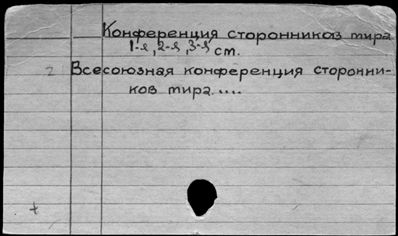 Конференция сторонников мира
1-я, 2-я, 3-я ст.
2 Всесоюзная конференция сторонни-
ков мира....
+